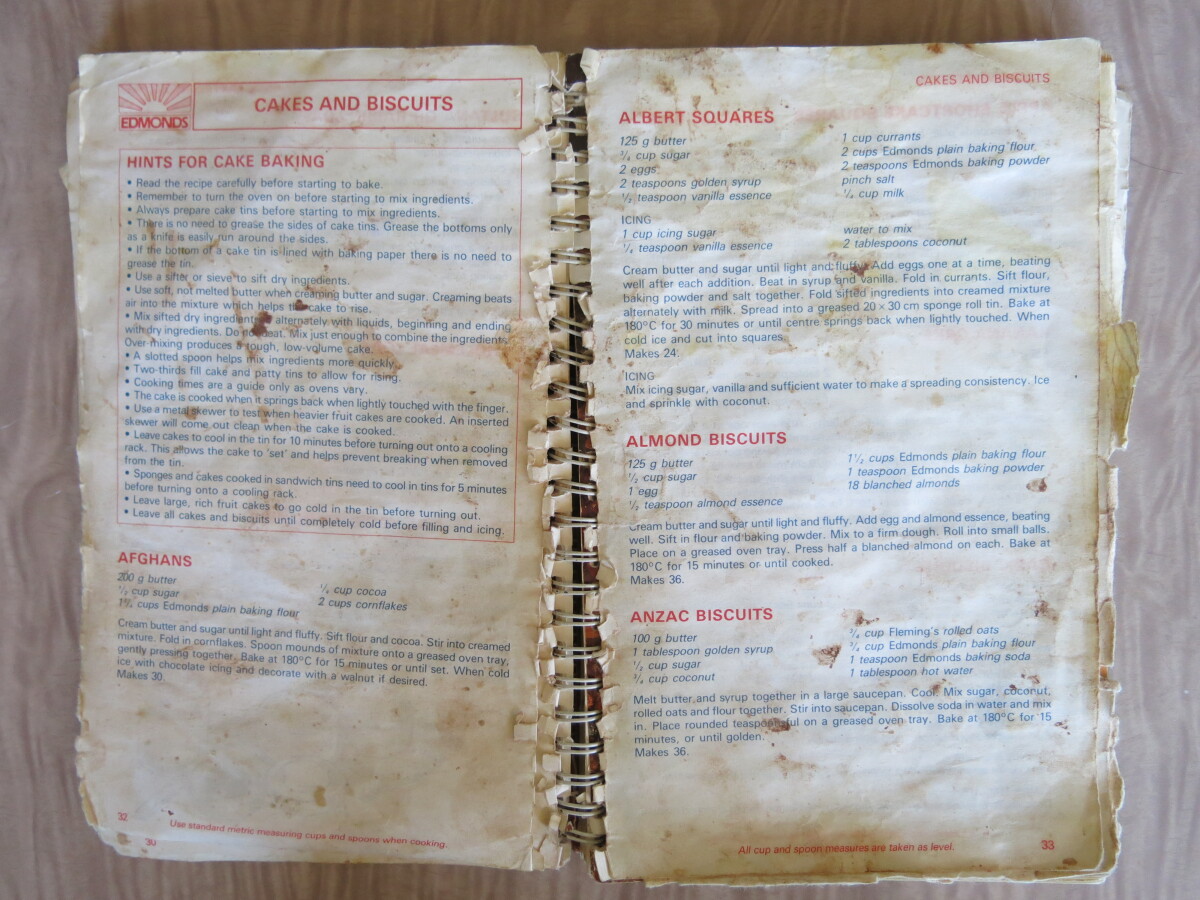 EDMONDS
CAKES AND BISCUITS
HINTS FOR CAKE BAKING
• Read the recipe carefully before starting to bake.
• Remember to turn the oven on before starting to mix ingredients.
• Always prepare cake tins before starting to mix ingredients.
• There is no need to grease the sides of cake tins. Grease the bottoms only
as a knife is easily run around the sides.
• If the bottom of a cake tin is lined with baking paper there is no need to
grease the tin.
• Use a sifter or sieve to sift dry ingredients.
• Use soft, not melted butter when creaming butter and sugar. Creaming beats
air into the mixture which helps the cake to rise.
• Mix sifted dry ingredients alternately with liquids, beginning and ending
with dry ingredients. Do not beat. Mix just enough to combine the ingredients.
Over-mixing produces a tough, low-volume cake.
• A slotted spoon helps mix ingredients more quickly.
• Two-thirds fill cake and patty tins to allow for rising.
• Cooking times are a guide only as ovens vary.
• The cake is cooked when it springs back when lightly touched with the finger.
• Use a metal skewer to test when heavier fruit cakes are cooked. An inserted
skewer will come out clean when the cake is cooked.
• Leave cakes to cool in the tin for 10 minutes before turning out onto a cooling
rack. This allows the cake to 'set' and helps prevent breaking when removed
from the tin.
• Sponges and cakes cooked in sandwich tins need to cool in tins for 5 minutes
before turning onto a cooling rack.
• Leave large, rich fruit cakes to go cold in the tin before turning out.
• Leave all cakes and biscuits until completely cold before filling and icing.
AFGHANS
200 g butter
½ cup sugar
1¼ cups Edmonds plain baking flour
¼ cup cocoa
2 cups cornflakes
Cream butter and sugar until light and fluffy. Sift flour and cocoa. Stir into creamed
mixture. Fold in cornflakes. Spoon mounds of mixture onto a greased oven tray,
gently pressing together. Bake at 180°C for 15 minutes or until set. When cold
ice with chocolate icing and decorate with a walnut if desired.
Makes 30.
32
Use standard metric measuring cups and spoons when cooking.
30
CAKES AND BISCUITS
ALBERT SQUARES
125 g butter
¾ cup sugar
2 eggs
2 teaspoons golden syrup
½ teaspoon vanilla essence
1 cup currants
2 cups Edmonds plain baking flour
2 teaspoons Edmonds baking powder
pinch salt
¼ cup milk
ICING
1 cup icing sugar
¼ teaspoon vanilla essence
water to mix
2 tablespoons coconut
Cream butter and sugar until light and fluffy. Add eggs one at a time, beating
well after each addition. Beat in syrup and vanilla. Fold in currants. Sift flour,
baking powder and salt together. Fold sifted ingredients into creamed mixture
alternately with milk. Spread into a greased 20 × 30 cm sponge roll tin. Bake at
180°C for 30 minutes or until centre springs back when lightly touched. When
cold ice and cut into squares.
Makes 24.
ICING
Mix icing sugar, vanilla and sufficient water to make a spreading consistency. Ice
and sprinkle with coconut.
ALMOND BISCUITS
125 g butter
½ cup sugar
1 egg
½ teaspoon almond essence
1½ cups Edmonds plain baking flour
1 teaspoon Edmonds baking powder
18 blanched almonds
Cream butter and sugar until light and fluffy. Add egg and almond essence, beating
well. Sift in flour and baking powder. Mix to a firm dough. Roll into small balls.
Place on a greased oven tray. Press half a blanched almond on each. Bake at
180°C for 15 minutes or until cooked.
Makes 36.
ANZAC BISCUITS
100 g butter
1 tablespoon golden syrup
½ cup sugar
¾ cup coconut
¾ cup Fleming's rolled oats
¾ cup Edmonds plain baking flour
1 teaspoon Edmonds baking soda
1 tablespoon hot water
Melt butter and syrup together in a large saucepan. Cool. Mix sugar, coconut,
rolled oats and flour together. Stir into saucepan. Dissolve soda in water and mix
in. Place rounded teaspoonful on a greased oven tray. Bake at 180°C for 15
minutes, or until golden.
Makes 36.
All cup and spoon measures are taken as level.
33